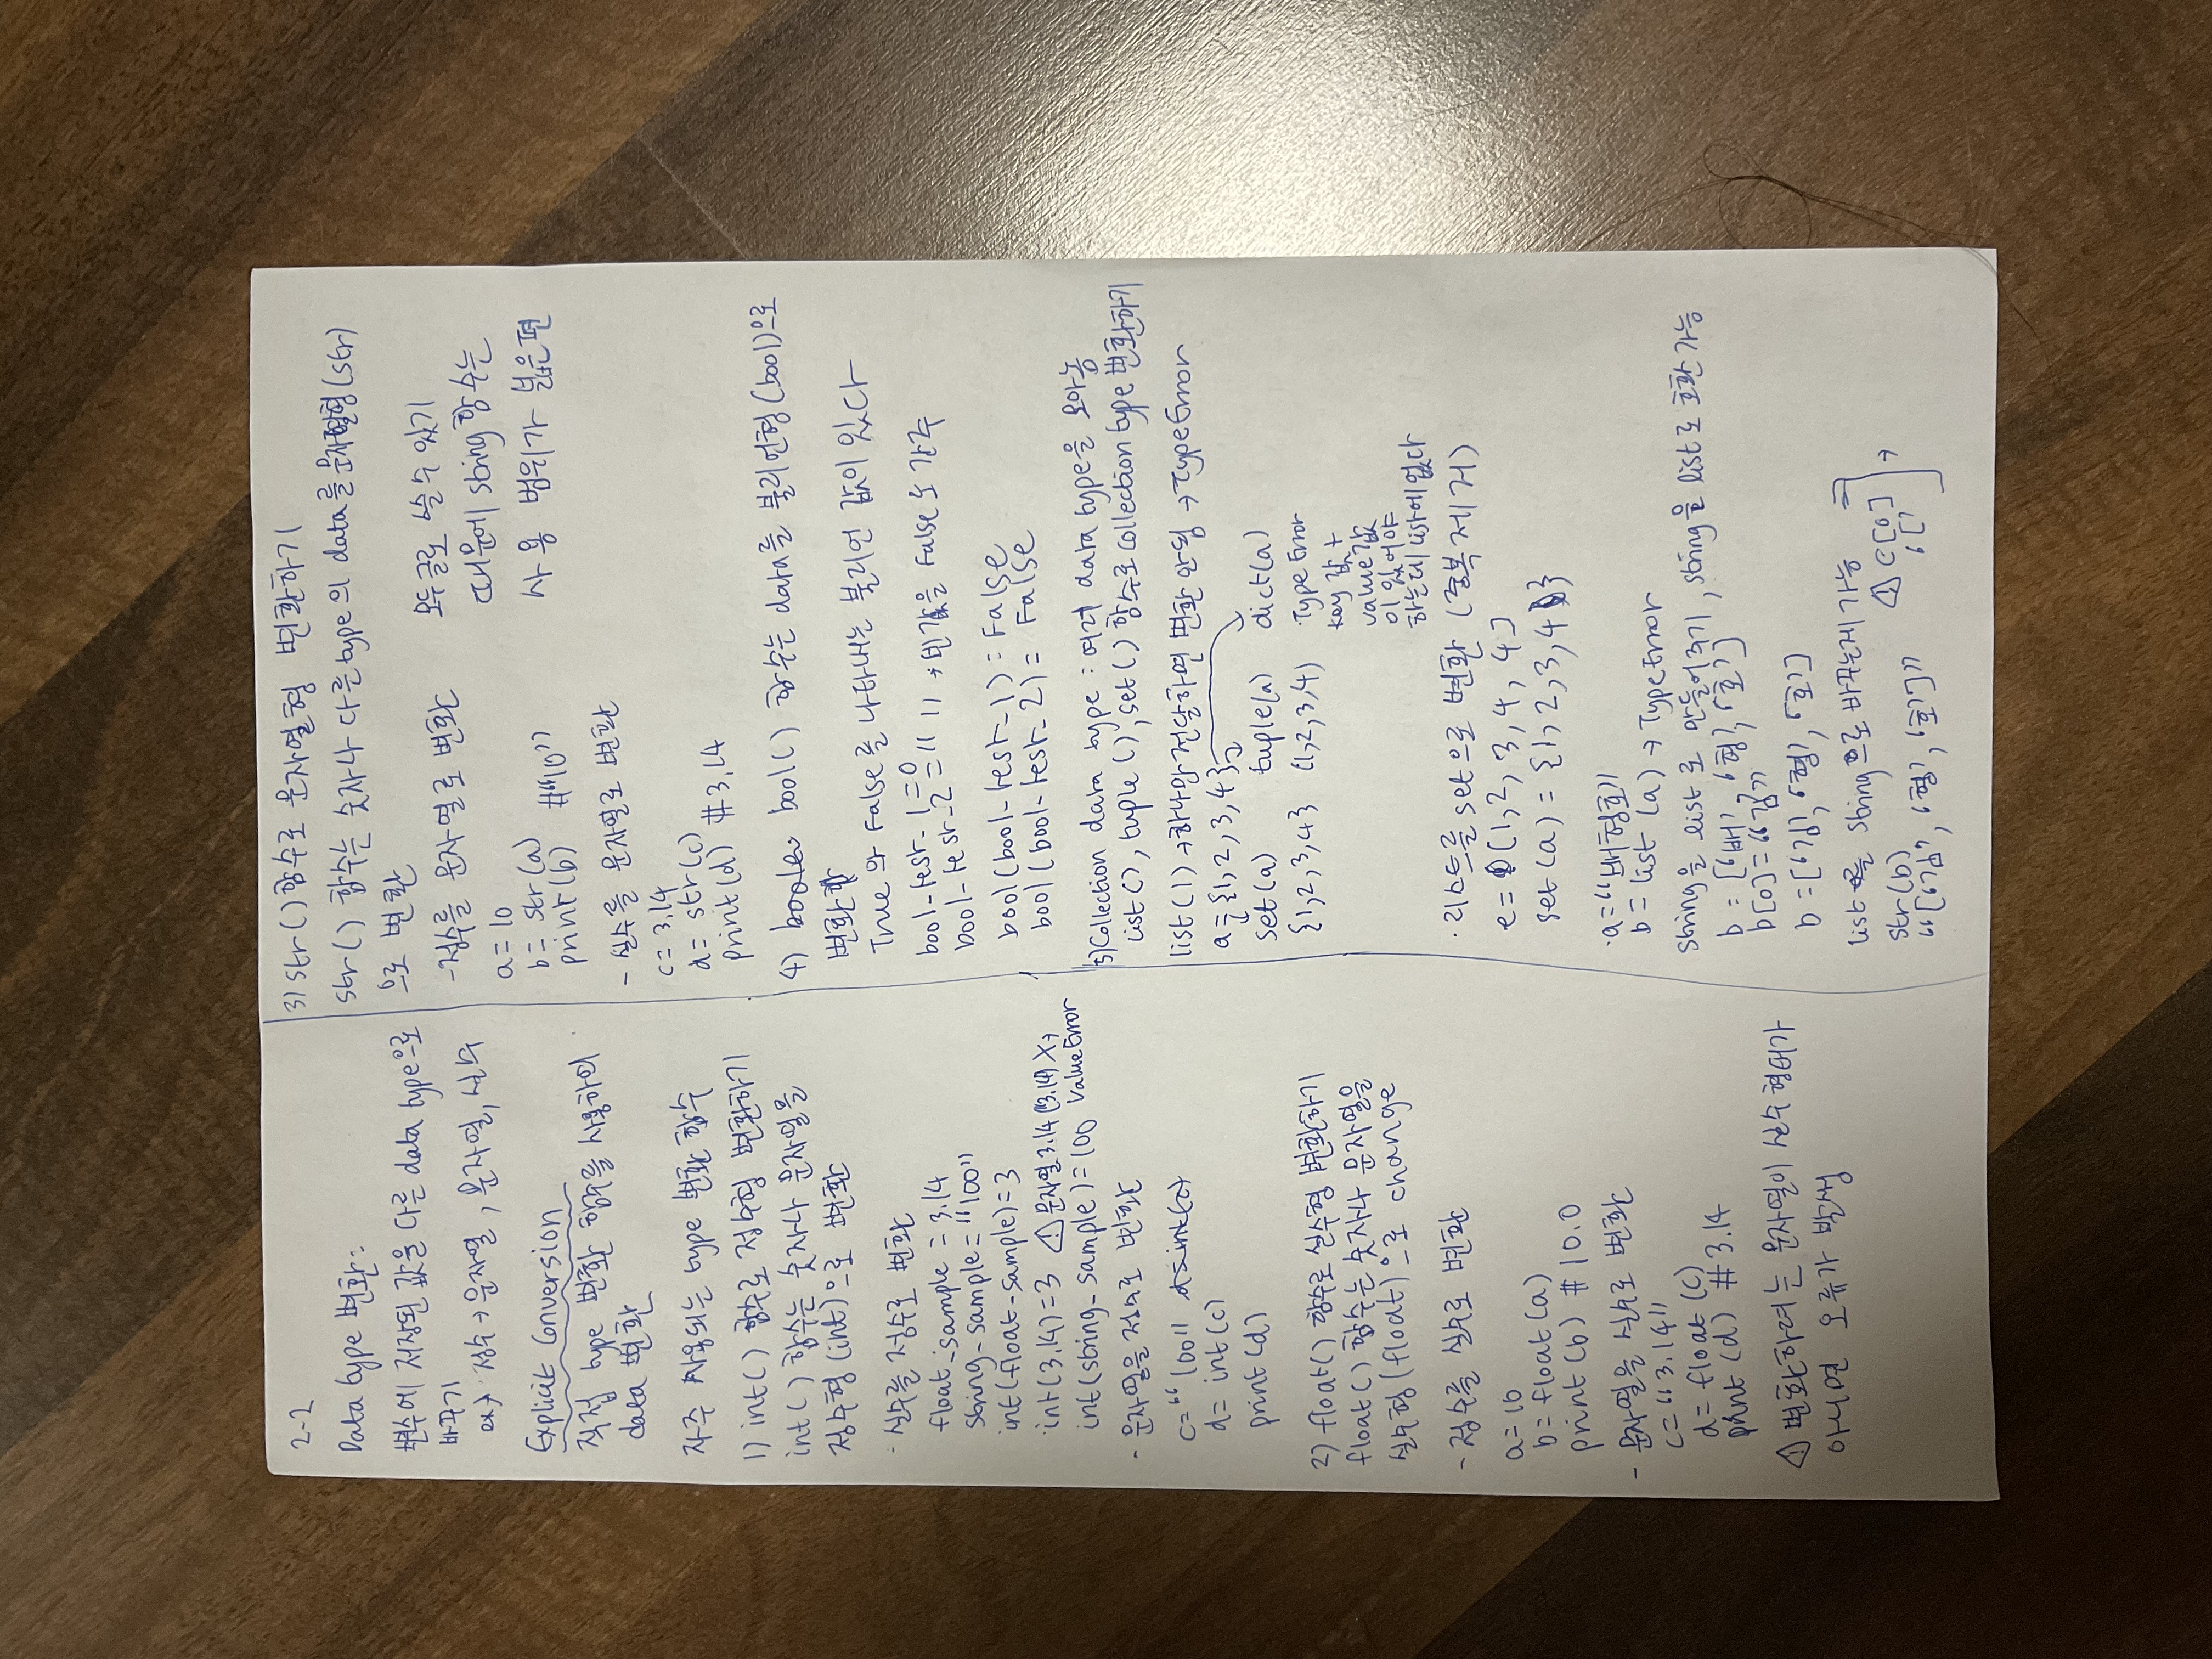 2-2
Data type 변환:
변수에 저장된 값을 다른 data type으로
바꾸기
ex) 정수→문자열, 문자열, 실수
Explicit Conversion
직접 type 변환 함수를 사용하여
data 변환
자주 사용되는 type 변환 함수
1) int( ) 함수로 정수형 변환하기
int( ) 함수는 숫자나 문자열을
정수형(int)으로 변환
- 실수를 정수로 변환
float_sample = 3.14
string_sample = "100"
int(float_sample)=3
int(3.14)=3 ⚠ 문자열 3.14("3.14) X→
int(string_sample)=100 ValueError
- 문자열을 정수로 변환
c="100"
d= int(c)
print(d)
2) float() 함수로 실수형 변환하기
float( ) 함수는 숫자나 문자열을
실수형(float)으로 change
- 정수를 실수로 변환
a=10
b=float(a)
print(b) # 10.0
- 문자열을 실수로 변환
c="3.14"
d=float(c)
print(d) #3.14
⚠ 변환하려는 문자열이 실수형태가
아니면 오류가 발생
3) str( )함수로 문자열형 변환하기
str( ) 함수는 숫자나 다른 type의 data를 문자열형(str)
으로 변환
- 정수를 문자열로 변환
a=10
b= str(a)
print(b) #"10"
모두 글로 쓸 수 있기
때문에 string 함수는
사용 범위가 넓은편
- 실수를 문자열로 변환
c= 3.14
d= str(c)
print(d) #3.14
4) bool( ) 함수는 data를 불리언형(bool)으로
변환
True와 False를 나타내는 불리언 값이 있다
bool-test-1=0
bool-test-2="" "" →빈값을 False로 간주
bool(bool-test-1)=False
bool(bool-test-2)= False
5)Collection data type : 여러 data type을 모아놓음
list( ), tuple( ), set( ) 함수로 collection type 변환하기
list(1)→하나만 전달하면 변환 안됨 →TypeError
a={1,2,3,4}
set(a) tuple(a) dict(a)
{1,2,3,4} (1,2,3,4) Type Error
key값 +
value값
이 있어야
하는데 list에 없다
· 리스트를 set으로 변환 (중복 제거)
e= (1,2,3,4,4]
set(a) = {1,2,3,4}
·a="배형호"
b= list(a)→TypeError
string을 list로 만들어주기, string을 list로 호환가능
b=['배', '형', '호']
b[0]="김"
b=['김', '형', '호']
list를 string으로 바꾸는게 가능
str(b) ⚠ c[0] = →
"['김', '형', '호']" '['